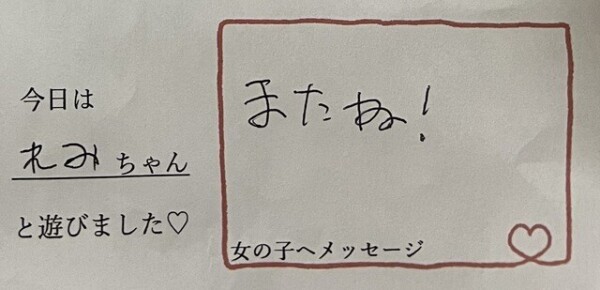 今日は
れみちゃん
と遊びました♡
またね!
女の子へメッセージ